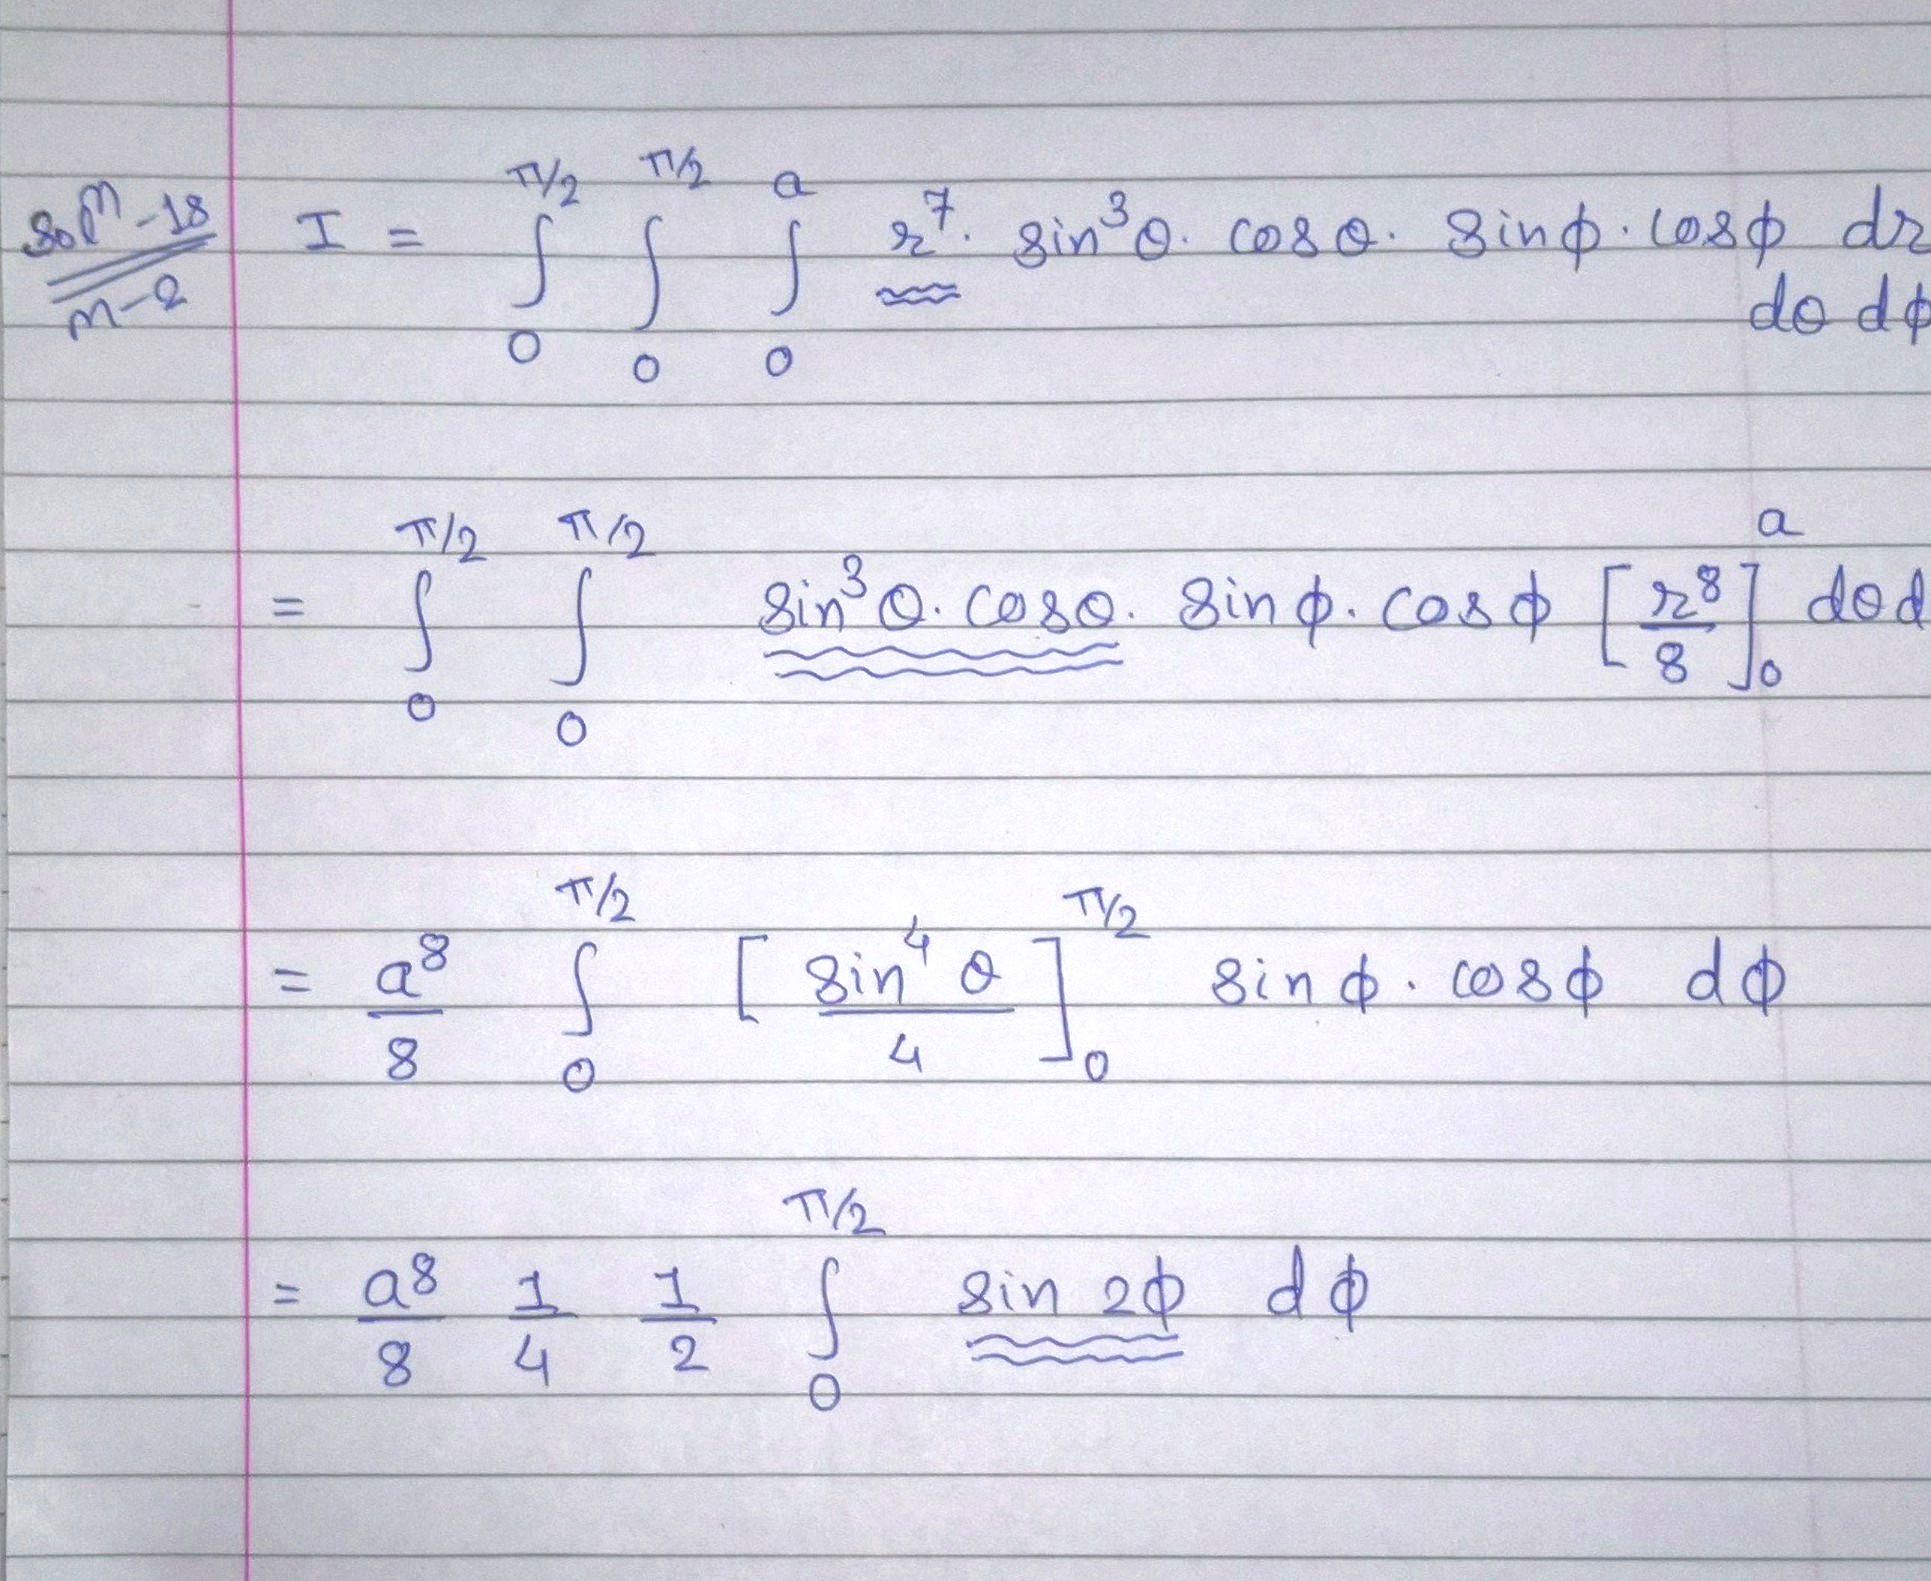 Som-18
m-2
I = ∫₀^{π/2} ∫₀^{π/2} ∫₀^{a} r⁷. sin³θ. cosθ. sinϕ. cosϕ dr
dθ dϕ
= ∫₀^{π/2} ∫₀^{π/2} sin³θ. cosθ. sinϕ. cosϕ [r⁸/8]₀^{a} dθ d
= a⁸/8 ∫₀^{π/2} [sin⁴θ/4]₀^{π/2} sinϕ. cosϕ dϕ
= a⁸/8 1/4 1/2 ∫₀^{π/2} sin 2ϕ dϕ